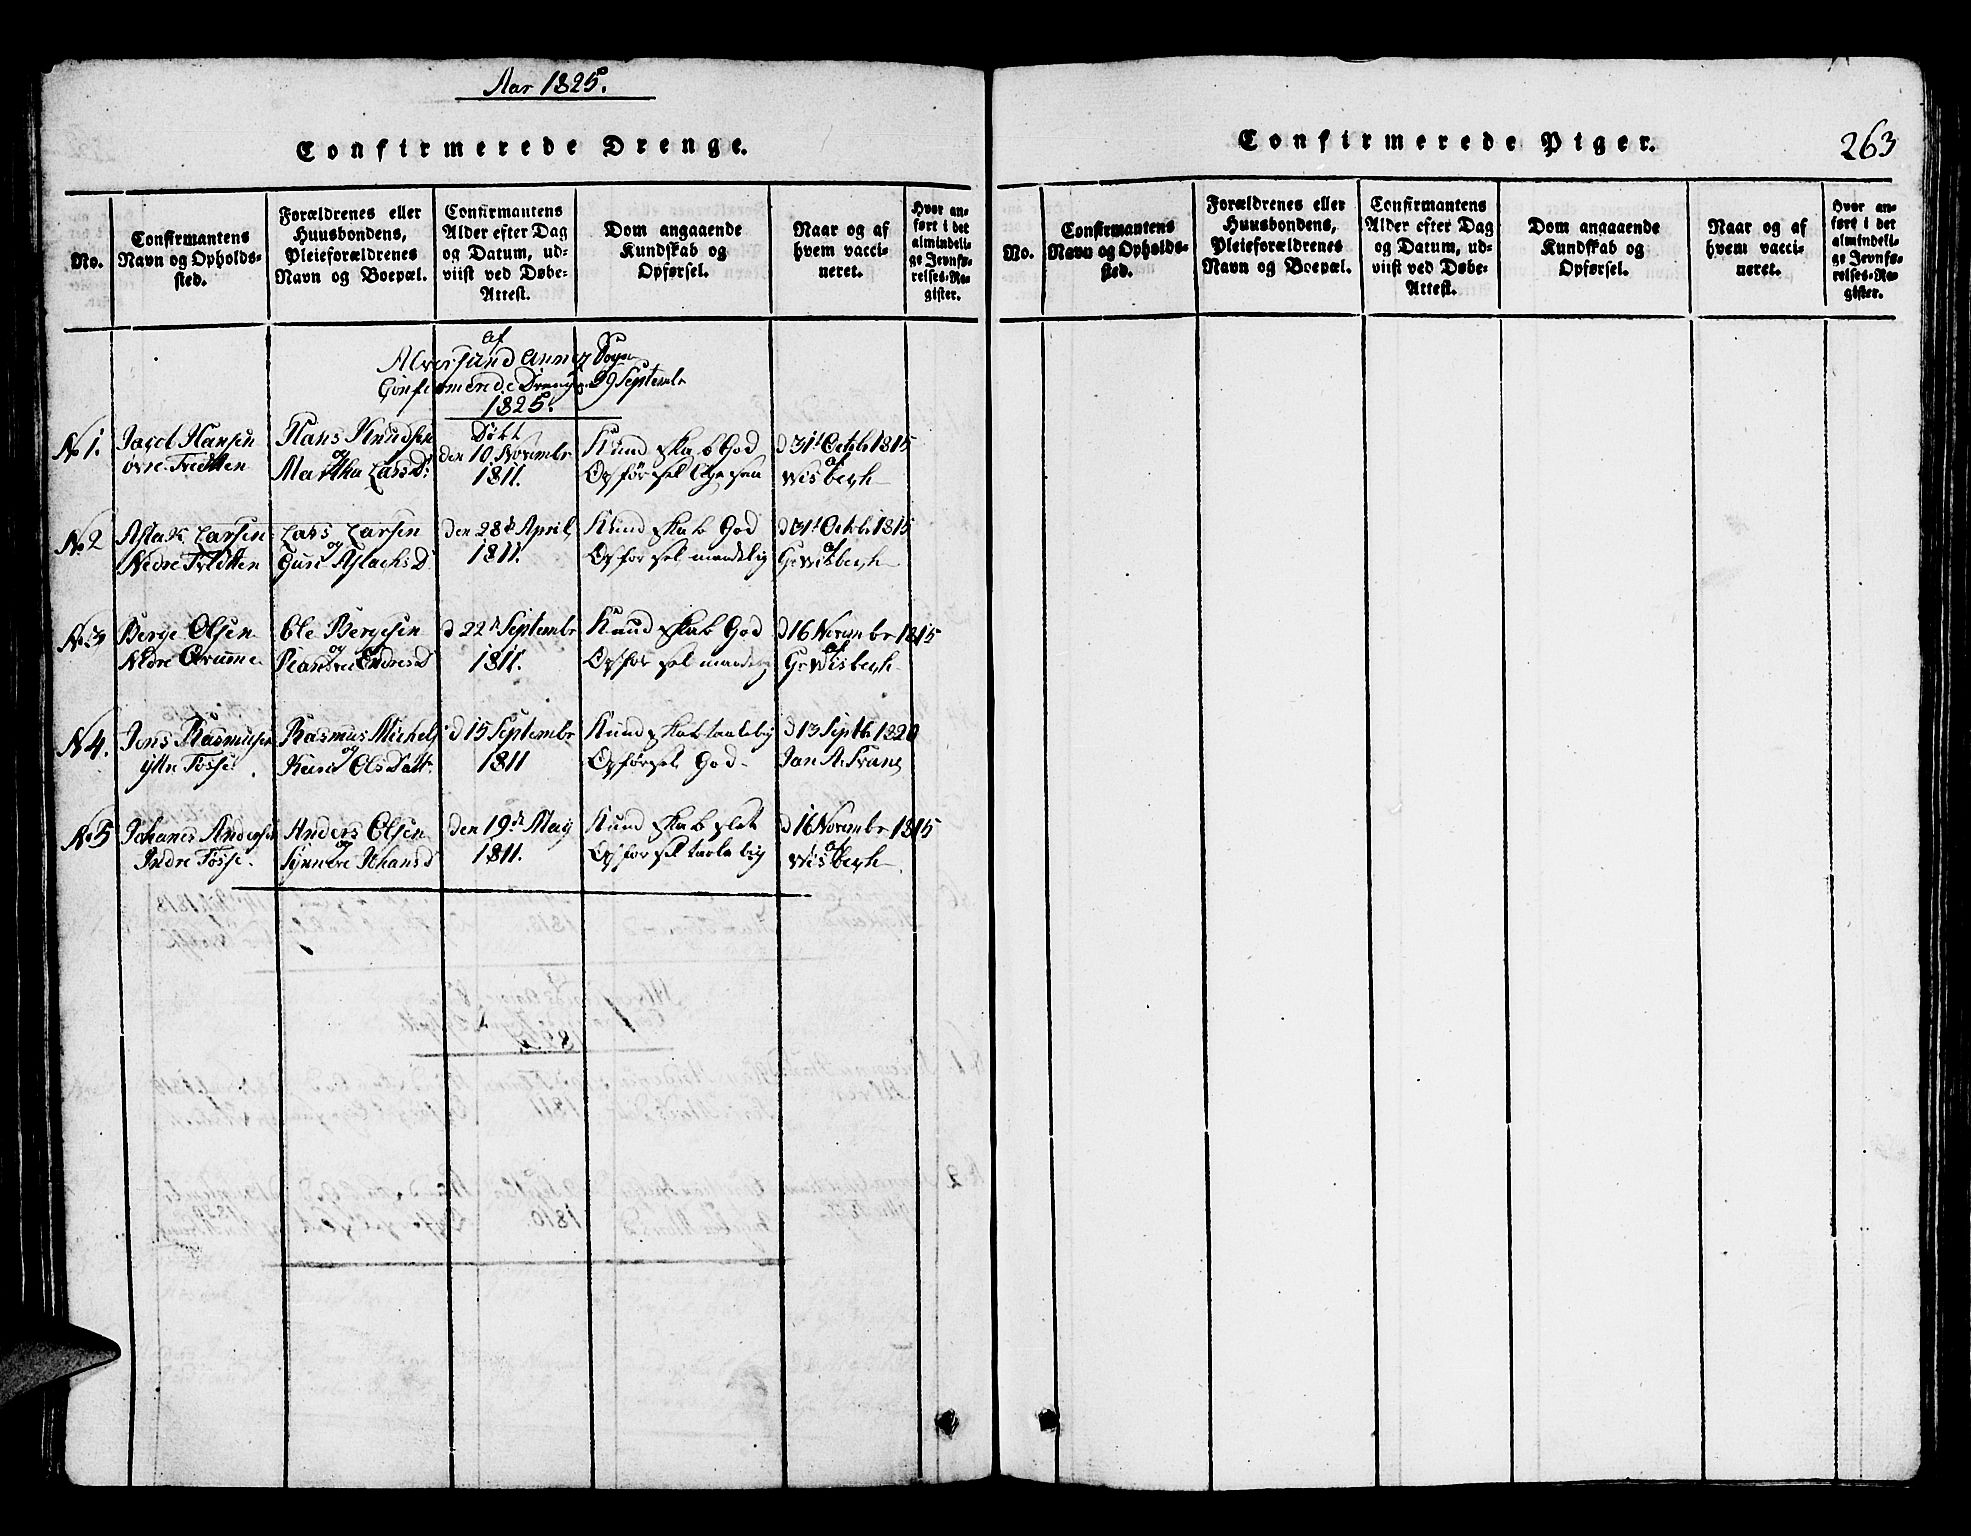 Aar 1825.
Confirmerede Drenge.
No.
Confirmantens
Navn og Opholds-
sted.
Forældrenes eller
Huusbondens,
Pleieforældrenes
Navn og Boepæl.
Confirmantens
Alder efter Dag
og Datum, ud-
viist ved Døbe-
Attest.
Dom angaaende
Kundskab og
Opførsel.
Naar og af
hvem vacci-
neret.
Hvor an-
ført i det
almindeli-
ge Jevnfø-
relses-Re-
gister.
af
Alversund Annex Sogn
Confirmerede Drenge 29 Septembr
1825.
No 1.
Hansen
øvre Tvedten
Hans Knudsen
og
Martha Larsd:
Døbt
den 10 Novembr
1811.
Kundskab God
Opførsel ligesaa
d 31t Octbr 1815
af
Wisbech
No 2
Aslak Larsen
Nedre Tvedten
Lars Larsen
og
Guri Aslachsd
den 28de April
1811.
Kundskab God
Opførsel maadelig
d 31t Octbr 1815
af
G: Wisbech
No 3
Berge Olsen
Nedre
Ole Bergesen
og
Endresd
d 22de Septembr
1811.
Kundskab God
Opførsel maadelig
d 16 Novembr 1815
af
G: Wisbech
No 4.
Jens Rasmusen
ytre Fosse
Rasmus Michels
og
Kari Olsdatt:
d 15 Septembr
1811
Kundskab taalelig
Opførsel God
d 13 Septb 1820
Jan A. Trane
No 5
Johanes Andersen
Indre Fosse.
Anders Olsen
og
Synneve Johansd
den 19de May
1811.
Kundskab slet
Opførsel taalelig
d 16 Novembr 1815
af
Wisbech
Confirmerede Piger.
263
No.
Confirmantens
Navn og Opholds-
sted.
Forældrenes eller
Huusbondens,
Pleieforældrenes
Navn og Boepæl.
Confirmantens
Alder efter Dag
og Datum, ud-
viist ved Døbe-
Attest.
Dom angaaende
Kundskab og
Opførsel.
Naar og af
hvem vacci-
neret.
Hvor an-
ført i det
almindeli-
ge Jevnfø-
relses-Re-
gister.